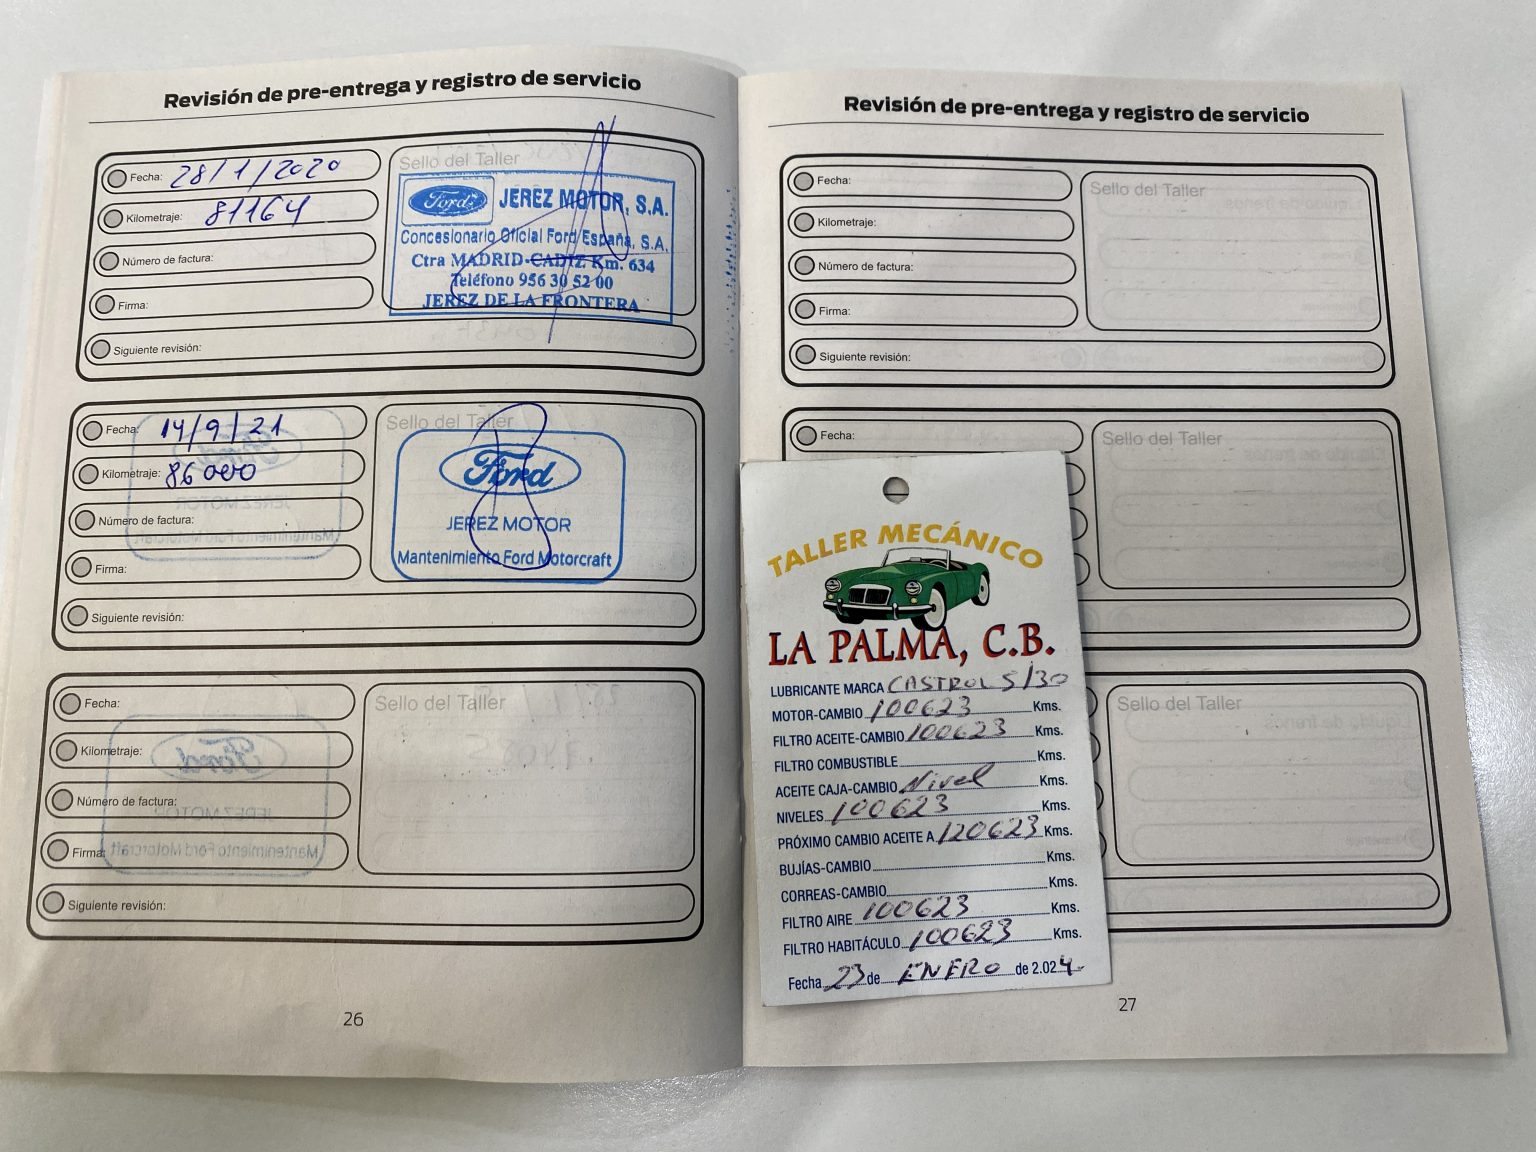 Revisión de pre-entrega y registro de servicio
Fecha: 28/1/2020
Kilometraje: 81164
Número de factura:
Firma:
Siguiente revisión:
Sello del Taller
Ford JEREZ MOTOR, S.A.
Concesionario Oficial Ford España, S.A.
Ctra MADRID-CADIZ Km. 634
Teléfono 956 30 52 00
JEREZ DE LA FRONTERA
Fecha: 14/9/21
Kilometraje: 86000
Número de factura:
Firma:
Siguiente revisión:
Sello del Taller
Ford
JEREZ MOTOR
Mantenimiento Ford Motorcraft
Fecha:
Kilometraje:
Número de factura:
Firma:
Siguiente revisión:
Sello del Taller
26
Revisión de pre-entrega y registro de servicio
Fecha:
Kilometraje:
Número de factura:
Firma:
Siguiente revisión:
Sello del Taller
Fecha:
Sello del Taller
Sello del Taller
TALLER MECÁNICO
LA PALMA, C.B.
LUBRICANTE MARCA CASTROL 5/30
MOTOR-CAMBIO 100623 Kms.
FILTRO ACEITE-CAMBIO 100623 Kms.
FILTRO COMBUSTIBLE Kms.
ACEITE CAJA-CAMBIO Nivel Kms.
NIVELES 100623 Kms.
PRÓXIMO CAMBIO ACEITE A 120623 Kms.
BUJÍAS-CAMBIO Kms.
CORREAS-CAMBIO Kms.
FILTRO AIRE 100623 Kms.
FILTRO HABITÁCULO 100623 Kms.
Fecha 23 de ENERO de 2.024
27